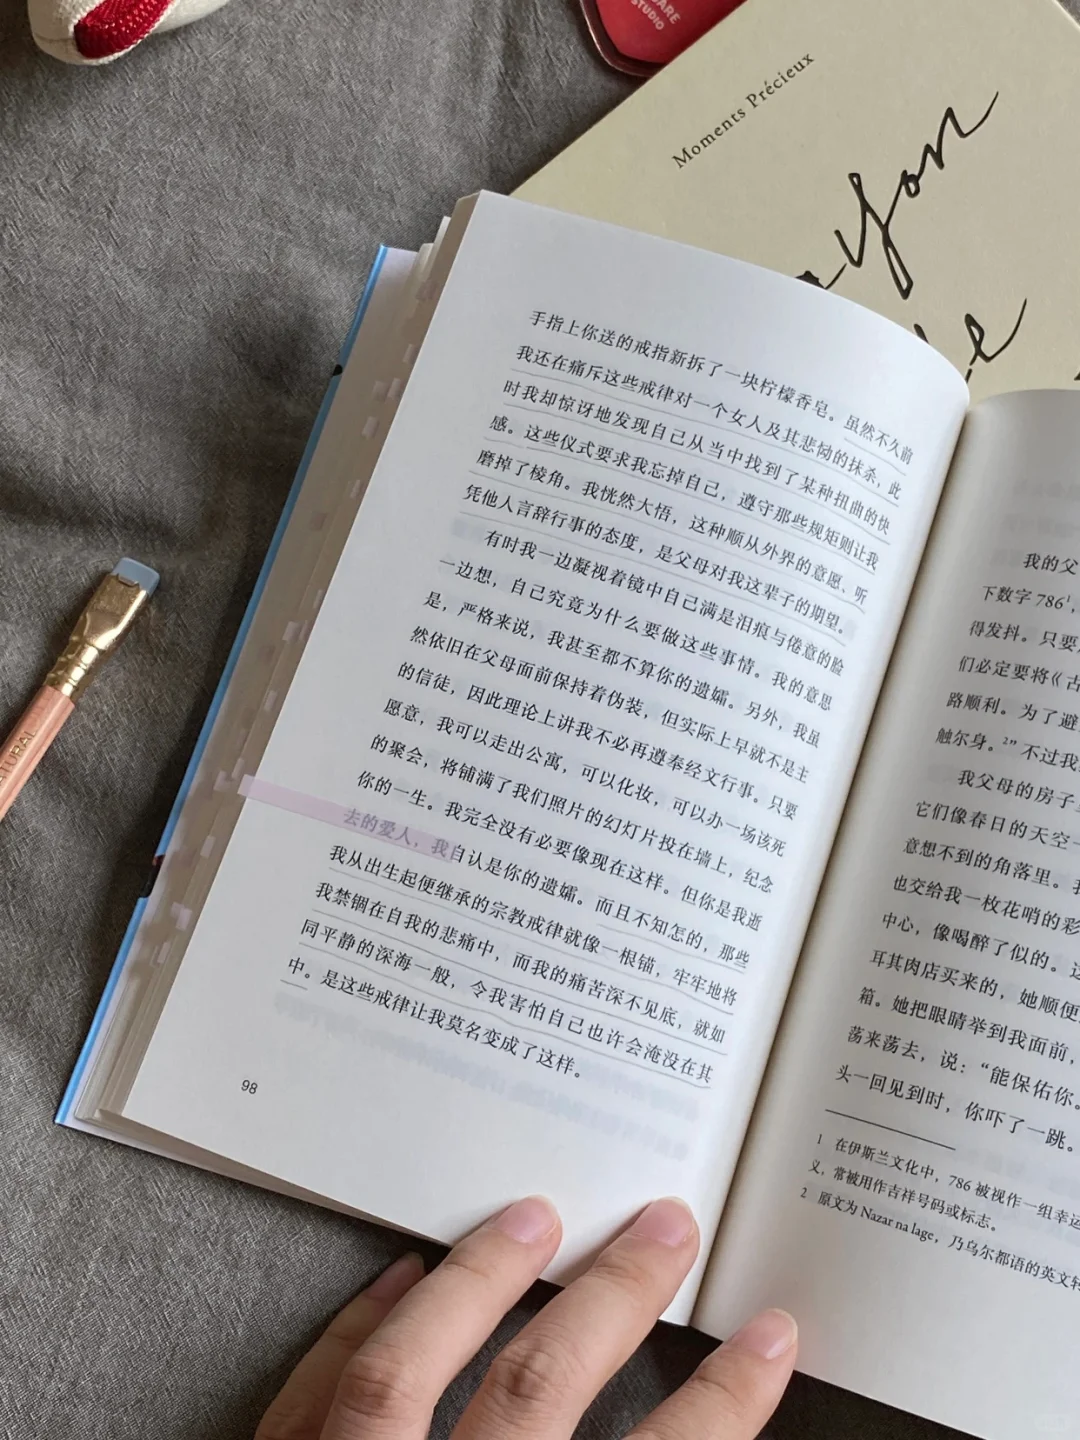 CARE
STUDIO
Moments Précieux
You
NATURAL
手指上你送的戒指新拆了一块柠檬香皂。虽然不久前
我还在痛斥这些戒律对一个女人及其悲恸的抹杀，此
时我却惊讶地发现自己从当中找到了某种扭曲的快
感。这些仪式要求我忘掉自己，遵守那些规矩则让我
磨掉了棱角。我恍然大悟，这种顺从外界的意愿、听
凭他人言辞行事的态度，是父母对我这辈子的期望。
有时我一边凝视着镜中自己满是泪痕与倦意的脸
一边想，自己究竟为什么要做这些事情。我的意思
是，严格来说，我甚至都不算你的遗孀。另外，我虽
然依旧在父母面前保持着伪装，但实际上早就不是主
的信徒，因此理论上讲我不必再遵奉经文行事。只要
愿意，我可以走出公寓，可以化妆，可以办一场该死
的聚会，将铺满了我们照片的幻灯片投在墙上，纪念
你的一生。我完全没有必要像现在这样。但你是我逝
去的爱人，我自认是你的遗孀。而且不知怎的，那些
我从出生起便继承的宗教戒律就像一根锚，牢牢地将
我禁锢在自我的悲痛中，而我的痛苦深不见底，就如
同平静的深海一般，令我害怕自己也许会淹没在其
中。是这些戒律让我莫名变成了这样。
98
我的父
下数字 786¹，
得发抖。只要
们必定要将《古
路顺利。为了避
触尔身。²”不过我
我父母的房子
它们像春日的天空一
意想不到的角落里。
也交给我一枚花哨的彩
中心，像喝醉了似的。这
耳其肉店买来的，她顺便
箱。她把眼睛举到我面前，
荡来荡去，说：“能保佑你。
头一回见到时，你吓了一跳。
1 在伊斯兰文化中，786 被视作一组幸运
义，常被用作吉祥号码或标志。
2 原文为 Nazar na lage，乃乌尔都语的英文转